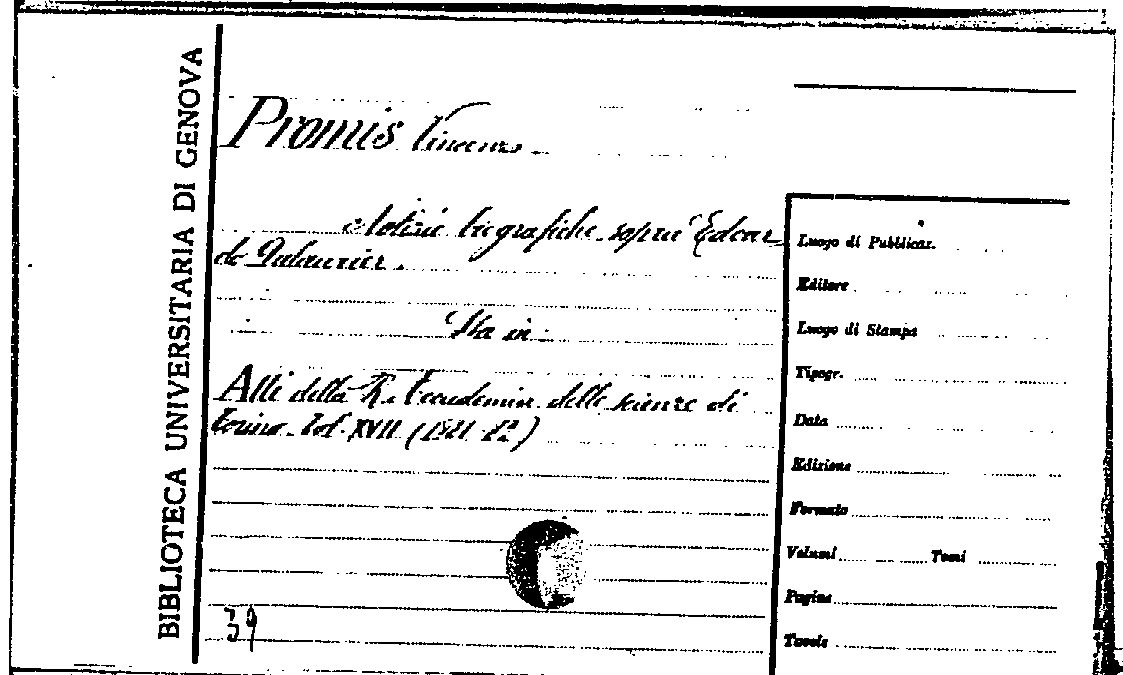 BIBLIOTECA UNIVERSITARIA DI GENOVA
Promis Vincenzo
Notizie biografiche sopra Edoar
do Dulaurier.
Sta in:
Atti della R. Accademia delle scienze di
Torino. Vol. XVII (1881-82)
39
Luogo di Pubblicaz.
Editore
Luogo di Stampa
Tipogr.
Data
Edizione
Formato
Volumi Tomi
Pagine
Tavole